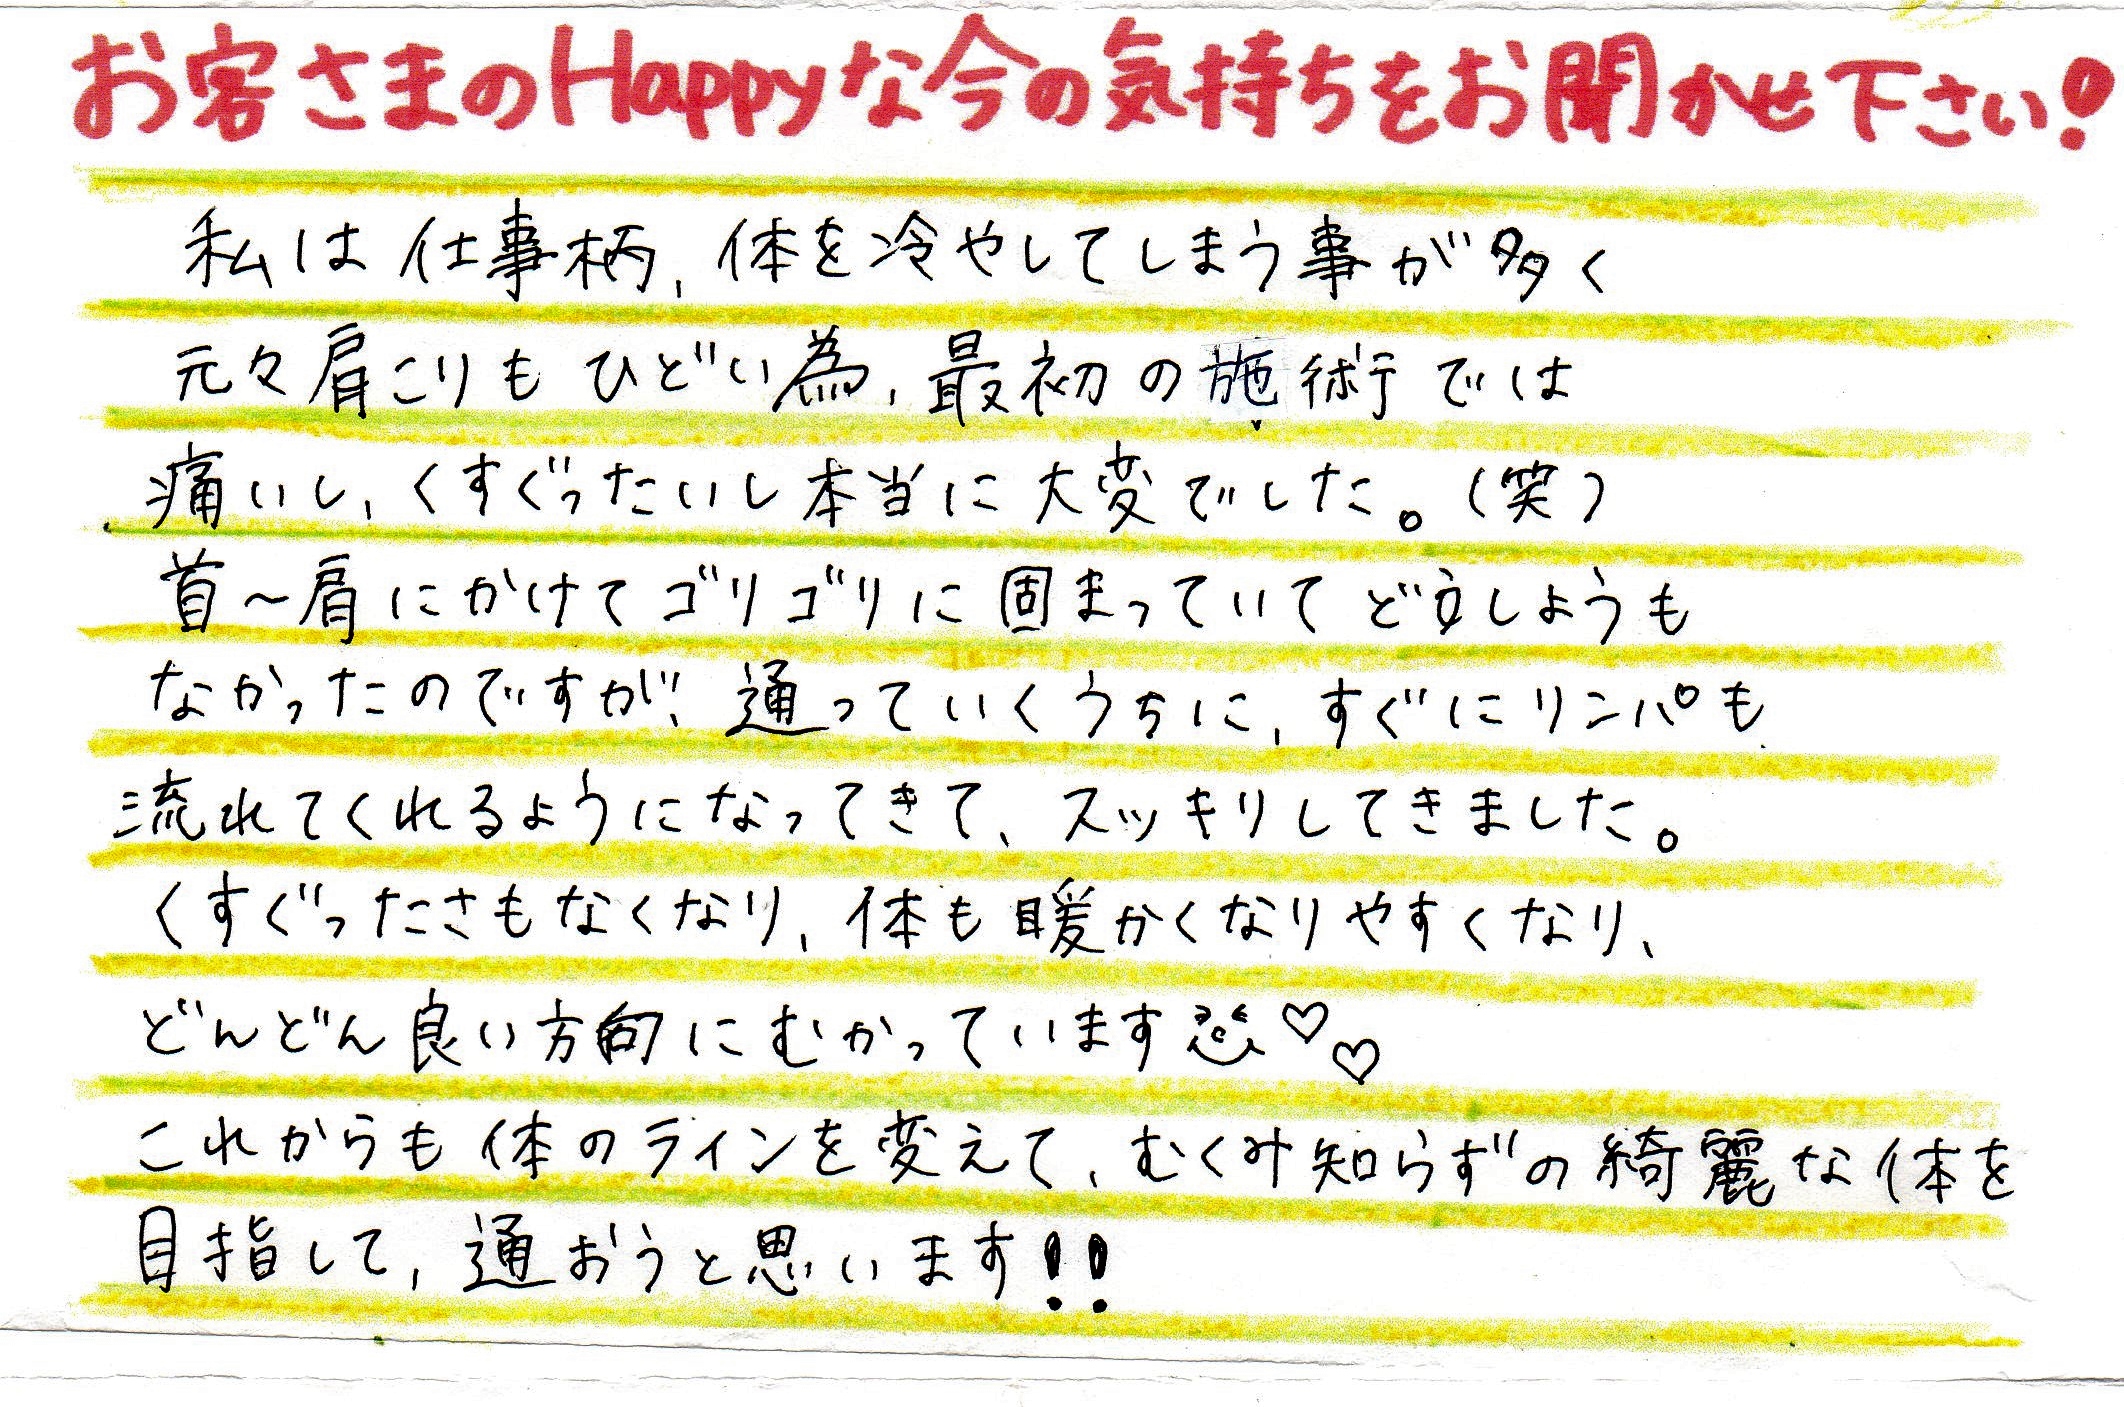 お客さまのHappyな今の気持ちをお聞かせ下さい!
私は仕事柄、体を冷やしてしまう事が多く
元々肩こりもひどい為、最初の施術では
痛いし、くすぐったいし本当に大変でした。(笑)
首~肩にかけてゴリゴリに固まっていてどうしようも
なかったのですが、通っていくうちに、すぐにリンパも
流れてくれるようになってきて、スッキリしてきました。
くすぐったさもなくなり、体も暖かくなりやすくなり、
どんどん良い方向にむかっています♡♡
これからも体のラインを変えて、むくみ知らずの綺麗な体を
目指して、通おうと思います!!